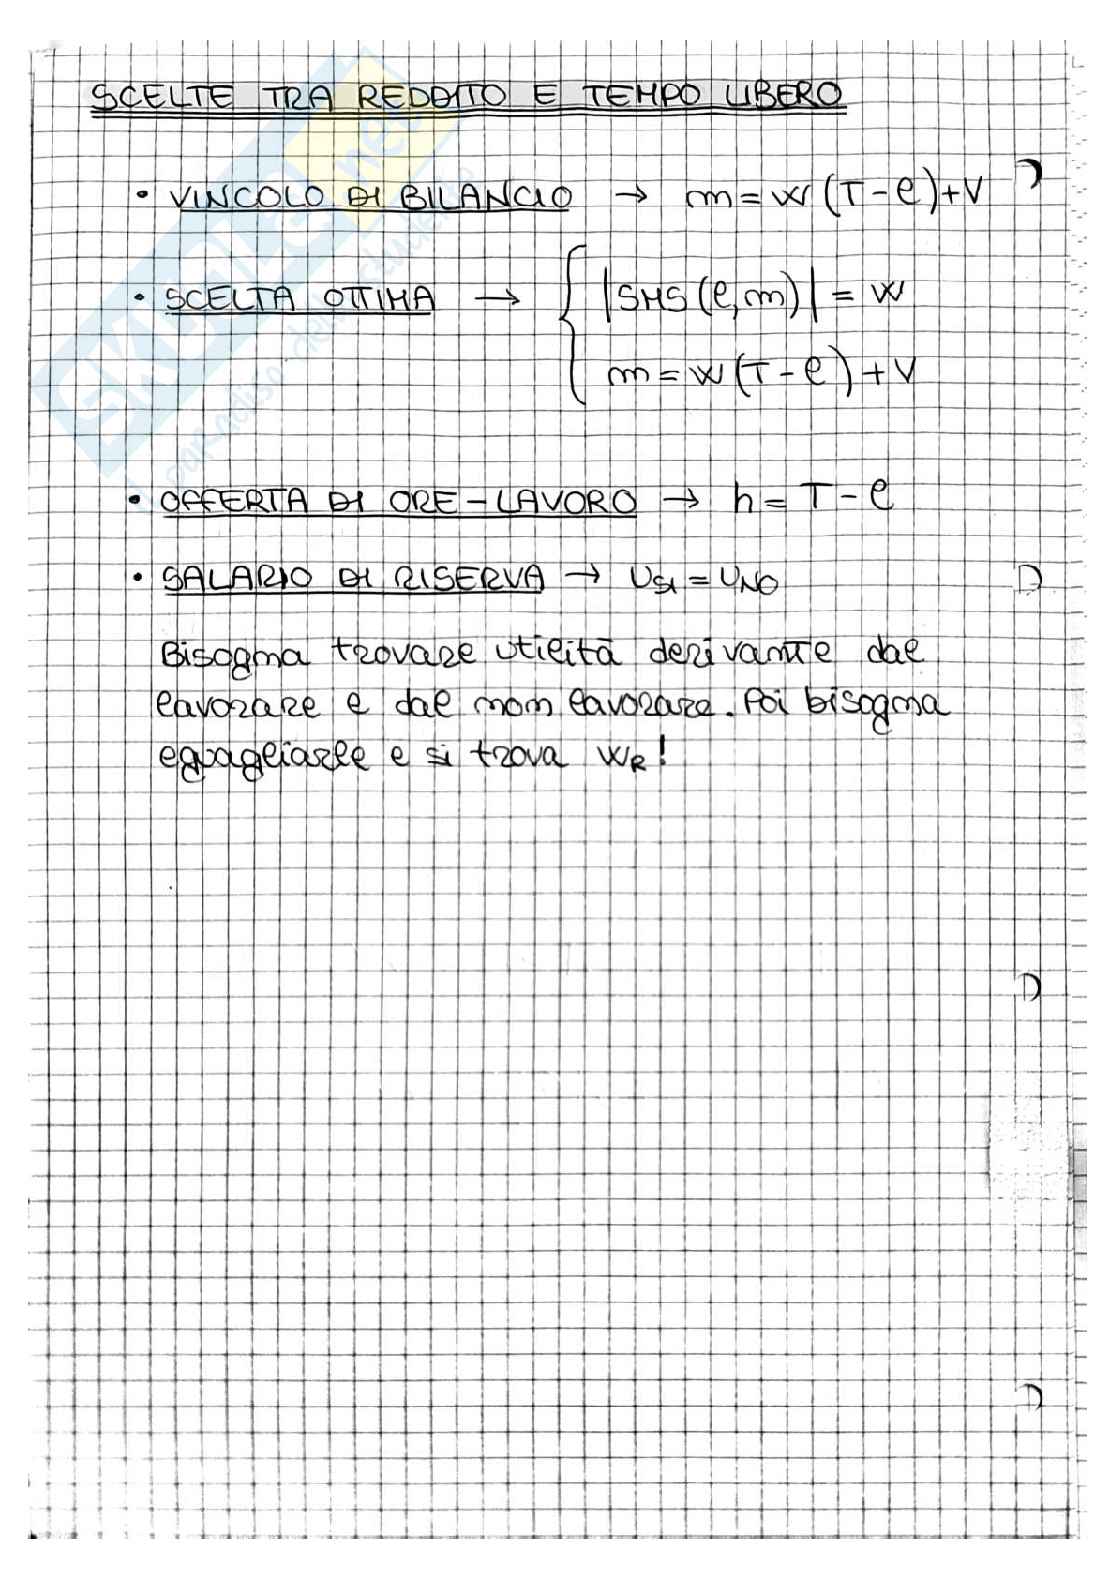 SCELTE TRA REDDITO E TEMPO LIBERO
• VINCOLO DI BILANCIO → m = w (T - l) + V
• SCELTA OTTIMA → { |SMS (l, m)| = w
m = w (T - l) + V
• OFFERTA DI ORE - LAVORO → h = T - l
• SALARIO DI RISERVA → USI = UNO
Bisogna trovare utilità derivante dal
lavorare e dal non lavorare. Poi bisogna
eguagliarle e si trova WR!
SKUOLA.net
il paradiso dello studente